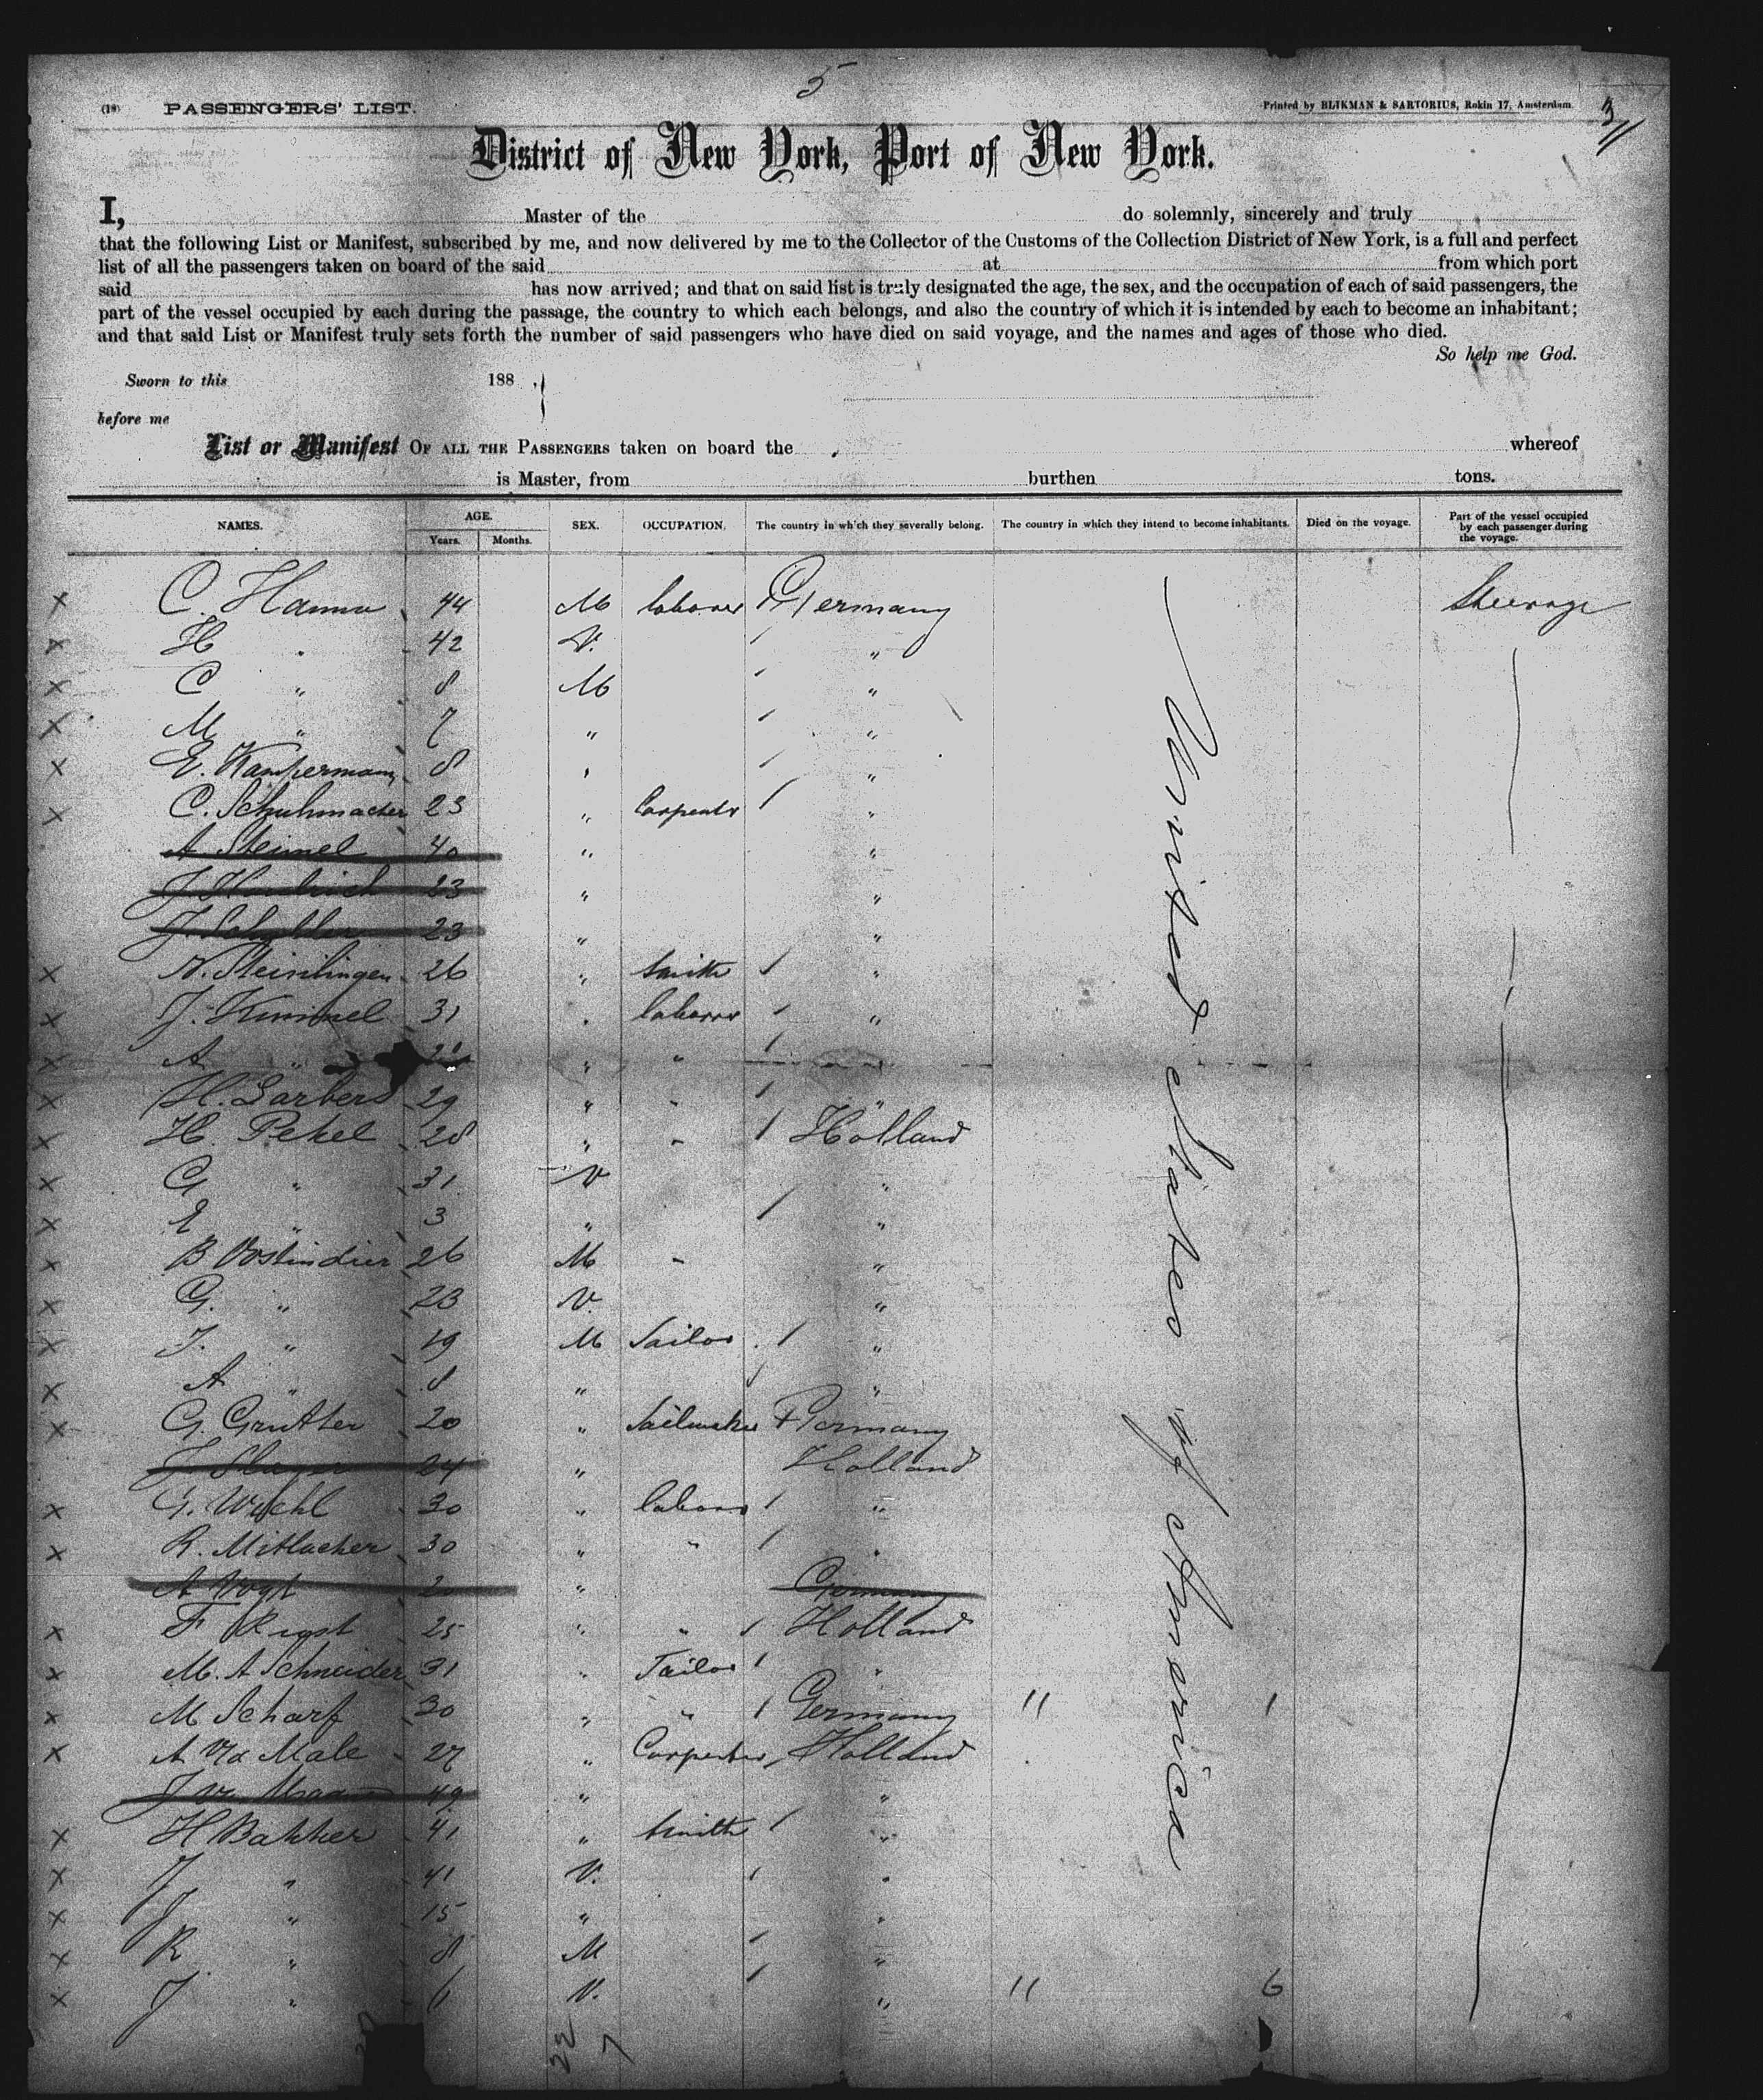 5
(18) PASSENGERS' LIST. Printed by BLIKMAN & SARTORIUS, Rokin 17, Amsterdam.
3
District of New York, Port of New York.
I, Master of the do solemnly, sincerely and truly
that the following List or Manifest, subscribed by me, and now delivered by me to the Collector of the Customs of the Collection District of New York, is a full and perfect
list of all the passengers taken on board of the said at from which port
said has now arrived; and that on said list is truly designated the age, the sex, and the occupation of each of said passengers, the
part of the vessel occupied by each during the passage, the country to which each belongs, and also the country of which it is intended by each to become an inhabitant;
and that said List or Manifest truly sets forth the number of said passengers who have died on said voyage, and the names and ages of those who died.
So help me God.
Sworn to this 188 .
before me
List or Manifest OF ALL THE PASSENGERS taken on board the whereof
is Master, from burthen tons.
NAMES. AGE. Years. Months. SEX. OCCUPATION. The country in which they severally belong. The country in which they intend to become inhabitants. Died on the voyage. Part of the vessel occupied by each passenger during the voyage.
United States of America
x C. Hamm 44 M laborer Germany Steerage
x H " 42 V. "
x C " 8 M "
x M " 7 " "
x E. Kampermann 8 " "
x C. Schuhmacher 23 " Carpenter "
A Steimel 40 " "
J 23 " "
J 23 " "
x N. 26 " Smith "
x J. Kimmel 31 " laborer "
x A " " "
x H. Garbers 29 " " "
x H. Pekel 28 " " Holland
x G " 31 V "
x E " 3 " "
x B Oostindier 26 M " "
x G. " 23 V. "
x J. " 19 M Sailor "
x A " 8 " "
x G. Grutter 20 " Sailmaker Germany
J 24 " Holland
x G. Wuhl 30 " laborer "
x R. Mitlacher 30 " " "
A Vogt " Germany
x F 25 " " Holland
x M. A Schneider 31 " Tailor "
x M Scharf 30 " " Germany 11 1
x A vd Male 27 " Carpenter Holland
J 49 " "
x H Bakker 41 " Smith "
x J " 41 V. "
x J " 15 " "
x R " 8 M "
x J " 6 V. " 11 6
22 7